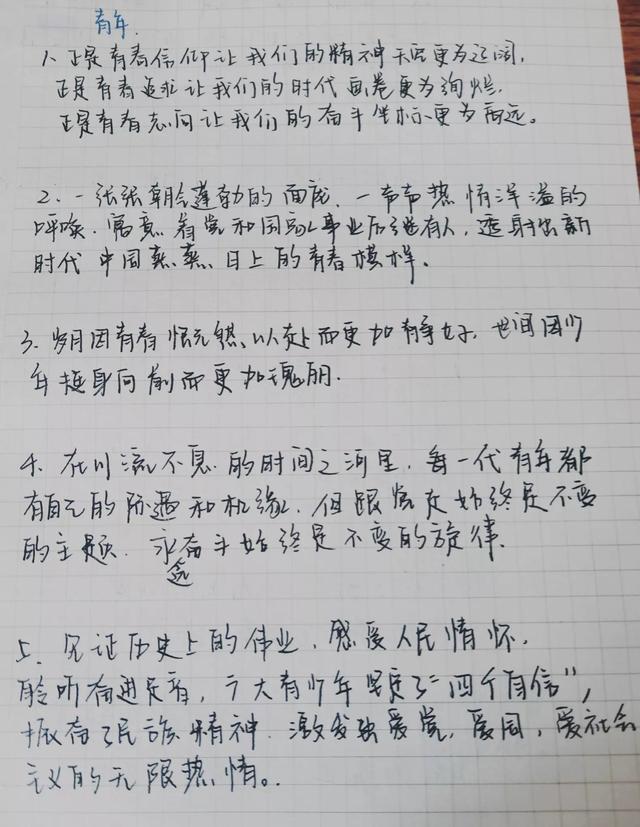 青年.
1、正是青春信仰让我们的精神天空更为辽阔,
正是青春追求让我们的时代画卷更为绚烂.
正是青春志向让我们的奋斗坐标更为高远。
2、一张张朝气蓬勃的面庞、一声声热情洋溢的
呼唤.寓意着党和国家事业后继有人,透射出新
时代中国蒸蒸日上的青春模样。
3、岁月因青春慨然以赴而更加静好,世间因少
年挺身向前而更加瑰丽.
4、在川流不息的时间之河里,每一代青年都
有自己的际遇和机缘.但跟党走始终是不变
的主题.永远奋斗始终是不变的旋律.
5、见证历史上的伟业,感受人民情怀.
聆听奋进足音,广大青少年坚定了“四个自信”,
振奋了民族精神.激发强爱党,爱国,爱社会
主义的无限热情。